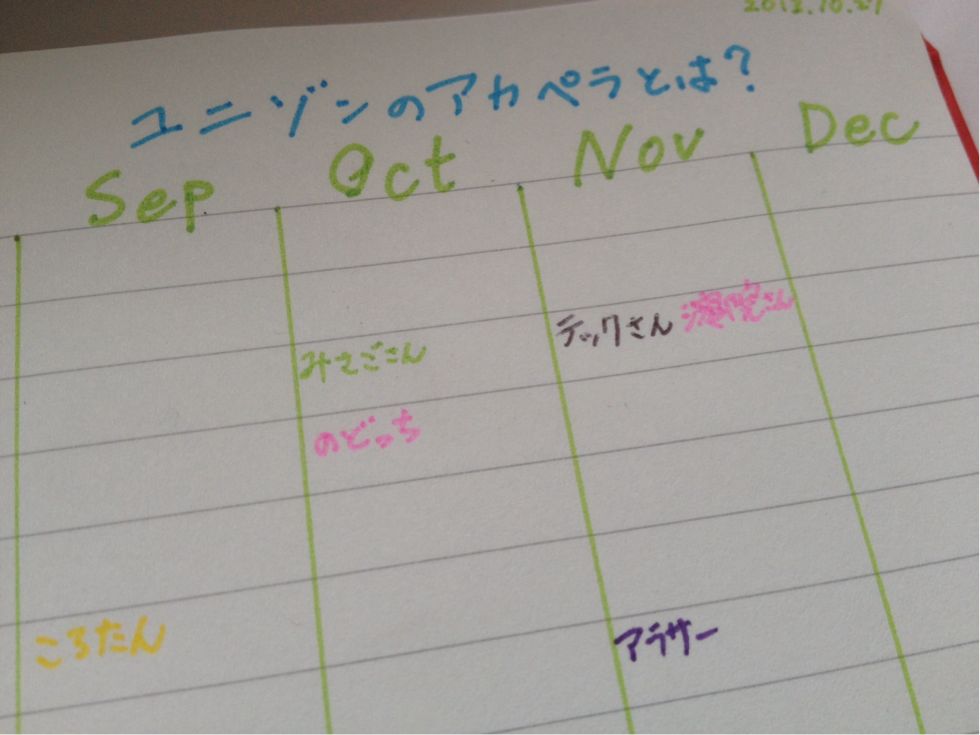 2012.10.
ユニゾンのアカペラとは?
Sep Oct Nov Dec
テックさん
みさごさん
のどっち
ころたん アラサー